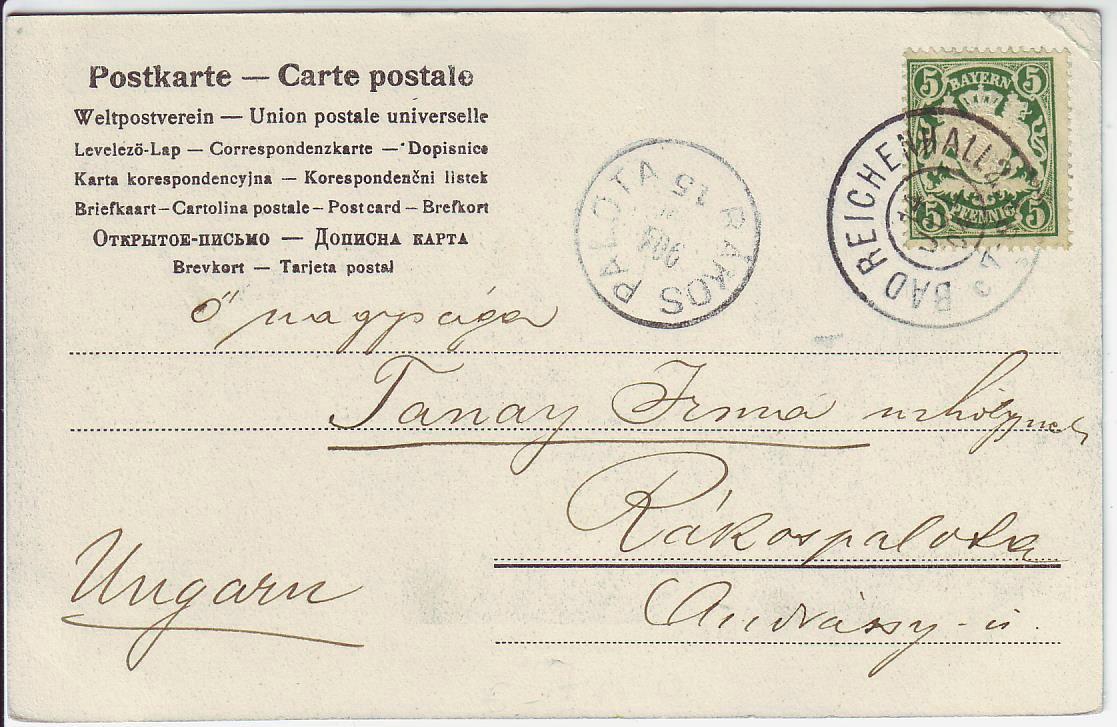 Postkarte — Carte postale
Weltpostverein — Union postale universelle
Levelező-Lap — Correspondenzkarte — Dopisnice
Karta korespondencyjna — Korespondenčni listek
Briefkaart — Cartolina postale — Post card — Brefkort
Открытое-письмо — Дописна карта
Brevkort — Tarjeta postal
5 BAYERN 5
5 PFENNIG 5
BAD REICHENHALL
RÁKOS PALOTA
15
906
Ő nagysága
Tanay Irma urhölgynek
Rákospalota
Ungarn
Andrássy-ú.